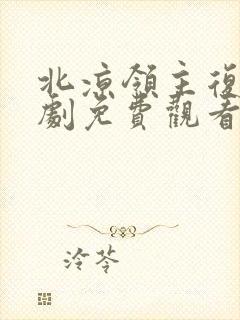 北涼領主復
劇免費觀看
泠苓